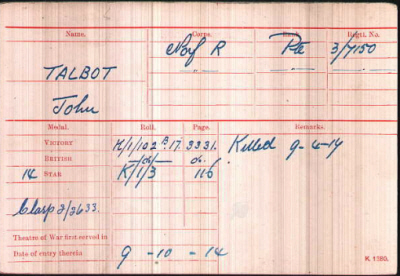 Name. Corps. Rank. Regtl. No.
TALBOT Norf R Pte 3/7150
" "
John
Medal. Roll. Page. Remarks.
VICTORY K/1/102 B 17 3331. Killed 9-4-17
BRITISH -do- do.
14 STAR K/1/3 116
Clasp 2/2633.
Theatre of War first served in
Date of entry therein 9 -10 -14
K. 1380.